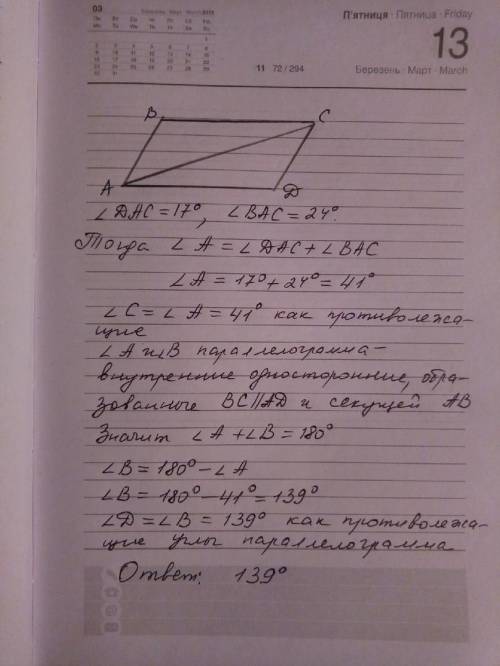 03
Березень · Март · March
П'ятниця · Пятница · Friday
13
11 72 / 294
Березень · Март · March
B
C
A
D
∠DAC = 17°, ∠BAC = 24°.
Тогда ∠A = ∠DAC + ∠BAC
∠A = 17° + 24° = 41°
∠C = ∠A = 41° как противолежа-
щие
∠A и ∠B параллелограмма -
внутренние односторонние, обра-
зованные BC||AD и секущей AB
Значит ∠A + ∠B = 180°
∠B = 180° - ∠A
∠B = 180° - 41° = 139°
∠D = ∠B = 139° как противолежа-
щие углы параллелограмма
Ответ: 139°